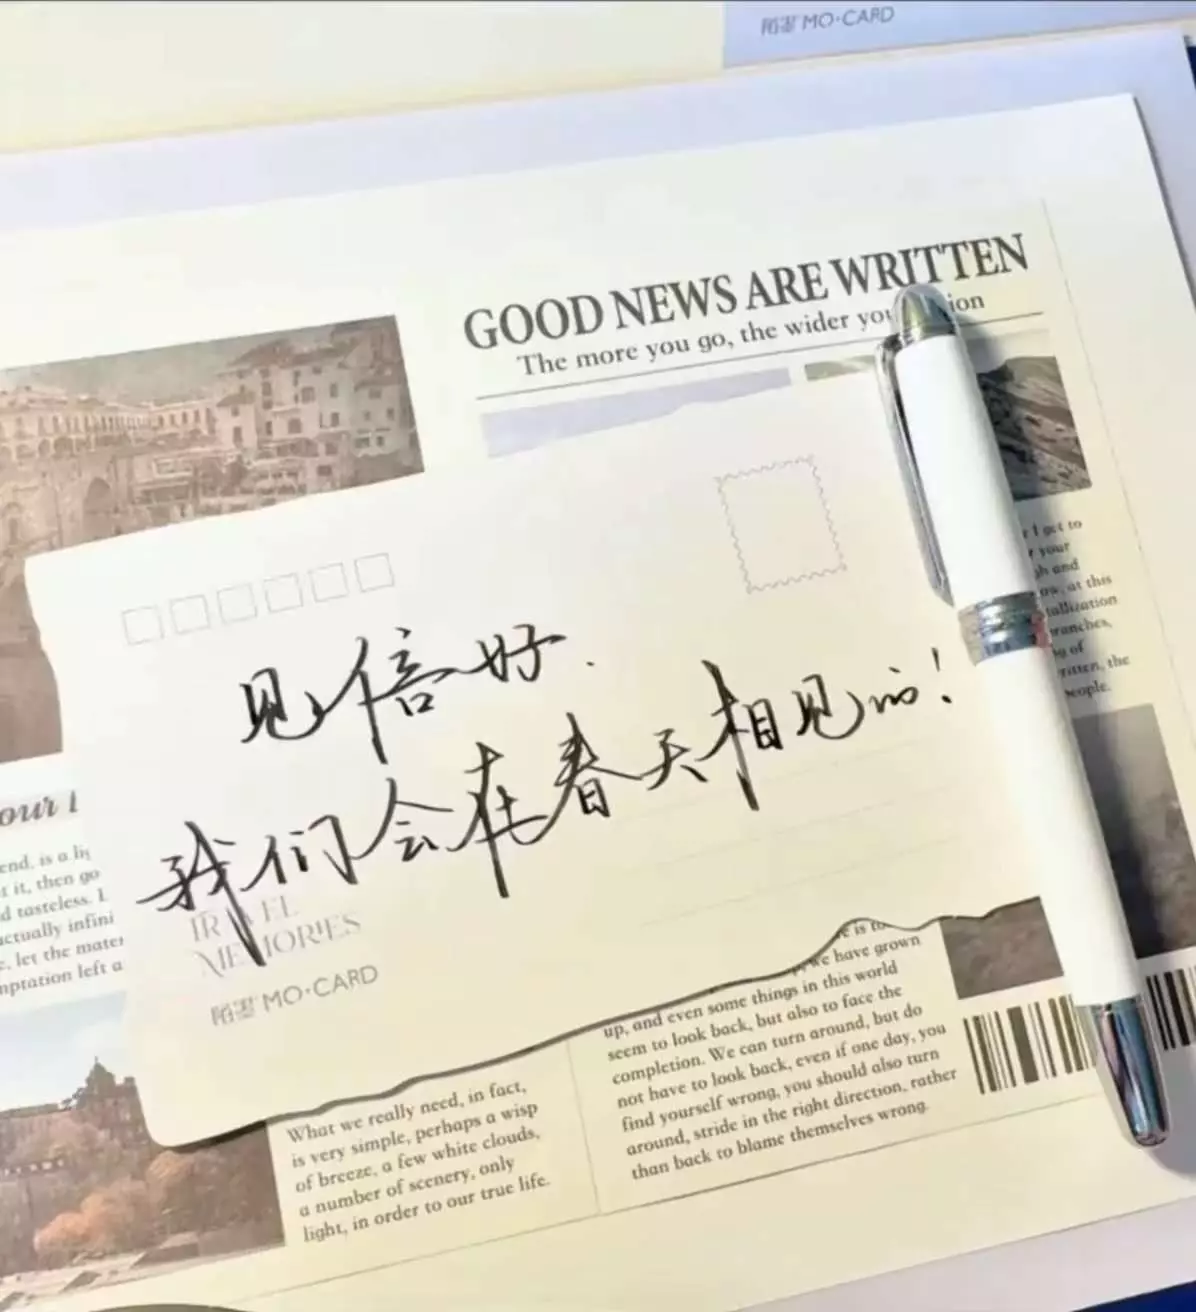 陌墨 MO·CARD
GOOD NEWS ARE WRITTEN
The more you go, the wider you
ion
见信好.
我们会在春天相见的!
TRAVEL
MEMORIES
陌墨 MO·CARD
our
end, is a
t it, then go
d tasteless. I
actually infini
, let the mater
mptation left a
I get to
your
gh and
ow, at this
tallization
ranches,
of
ritten, the
people.
What we really need, in fact,
is very simple, perhaps a wisp
of breeze, a few white clouds,
a number of scenery, only
light, in order to our true life.
e is to
we have grown
up, and even some things in this world
seem to look back, but also to face the
completion. We can turn around, but do
not have to look back, even if one day, you
find yourself wrong, you should also turn
around, stride in the right direction, rather
than back to blame themselves wrong.